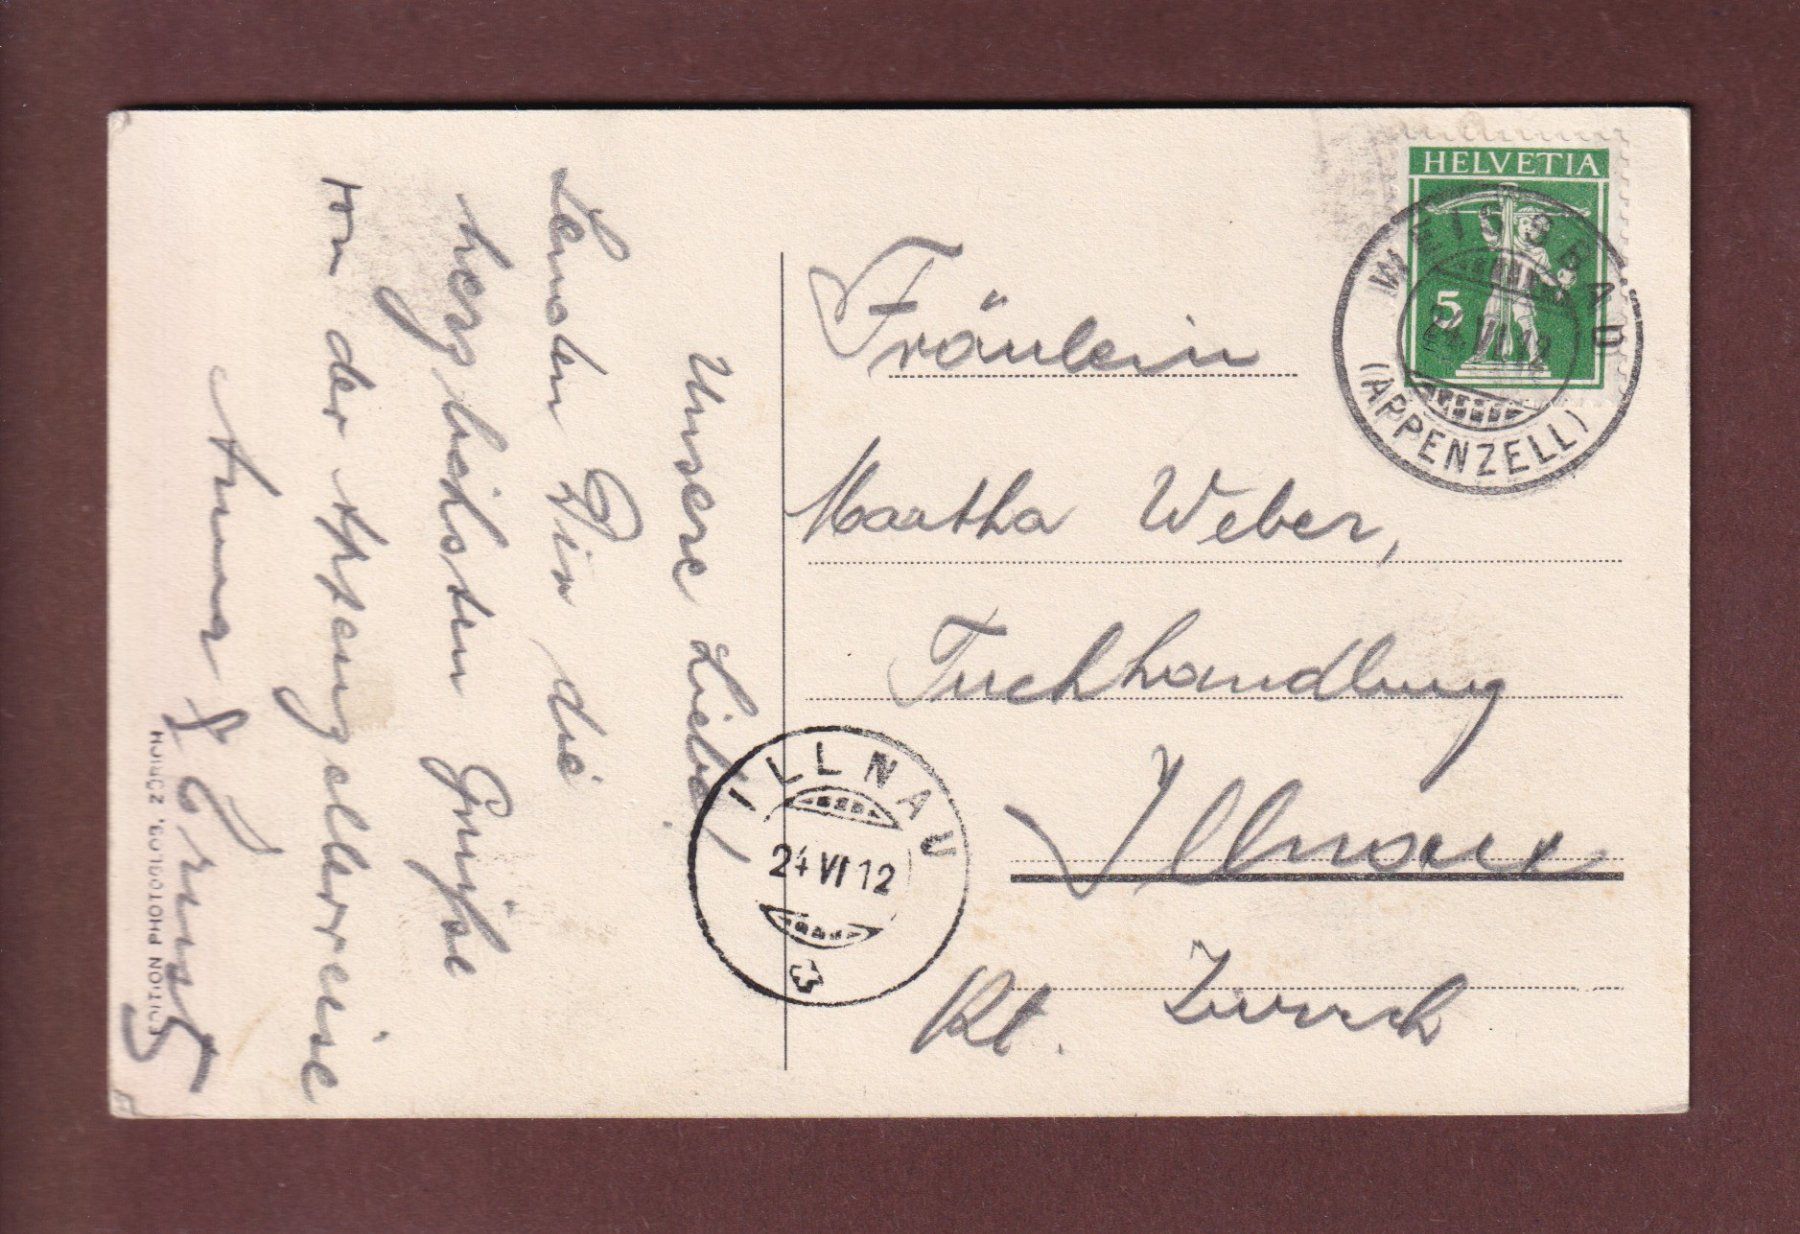 Unsere Liebe!
Senden Dir die
herzlichsten Grüsse
von der Appenzellerreise
Anna & Ernst
EDITION PHOTOGLOB, ZÜRICH
HELVETIA
5
WEISSBAD
24.VI.12
(APPENZELL)
Fräulein
Martha Weber,
Tuchhandlung
Illnau
Kt. Zürich
ILLNAU
24 VI 12